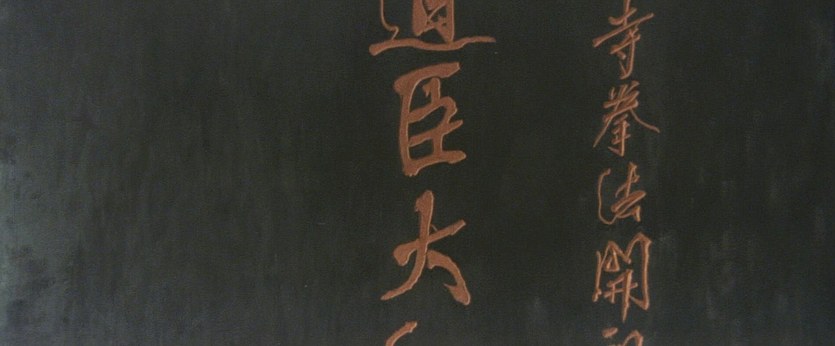 寺拳法開
道臣大